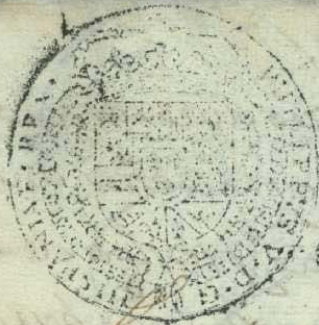 PHILIPPVS V D G HISPANIAR REX